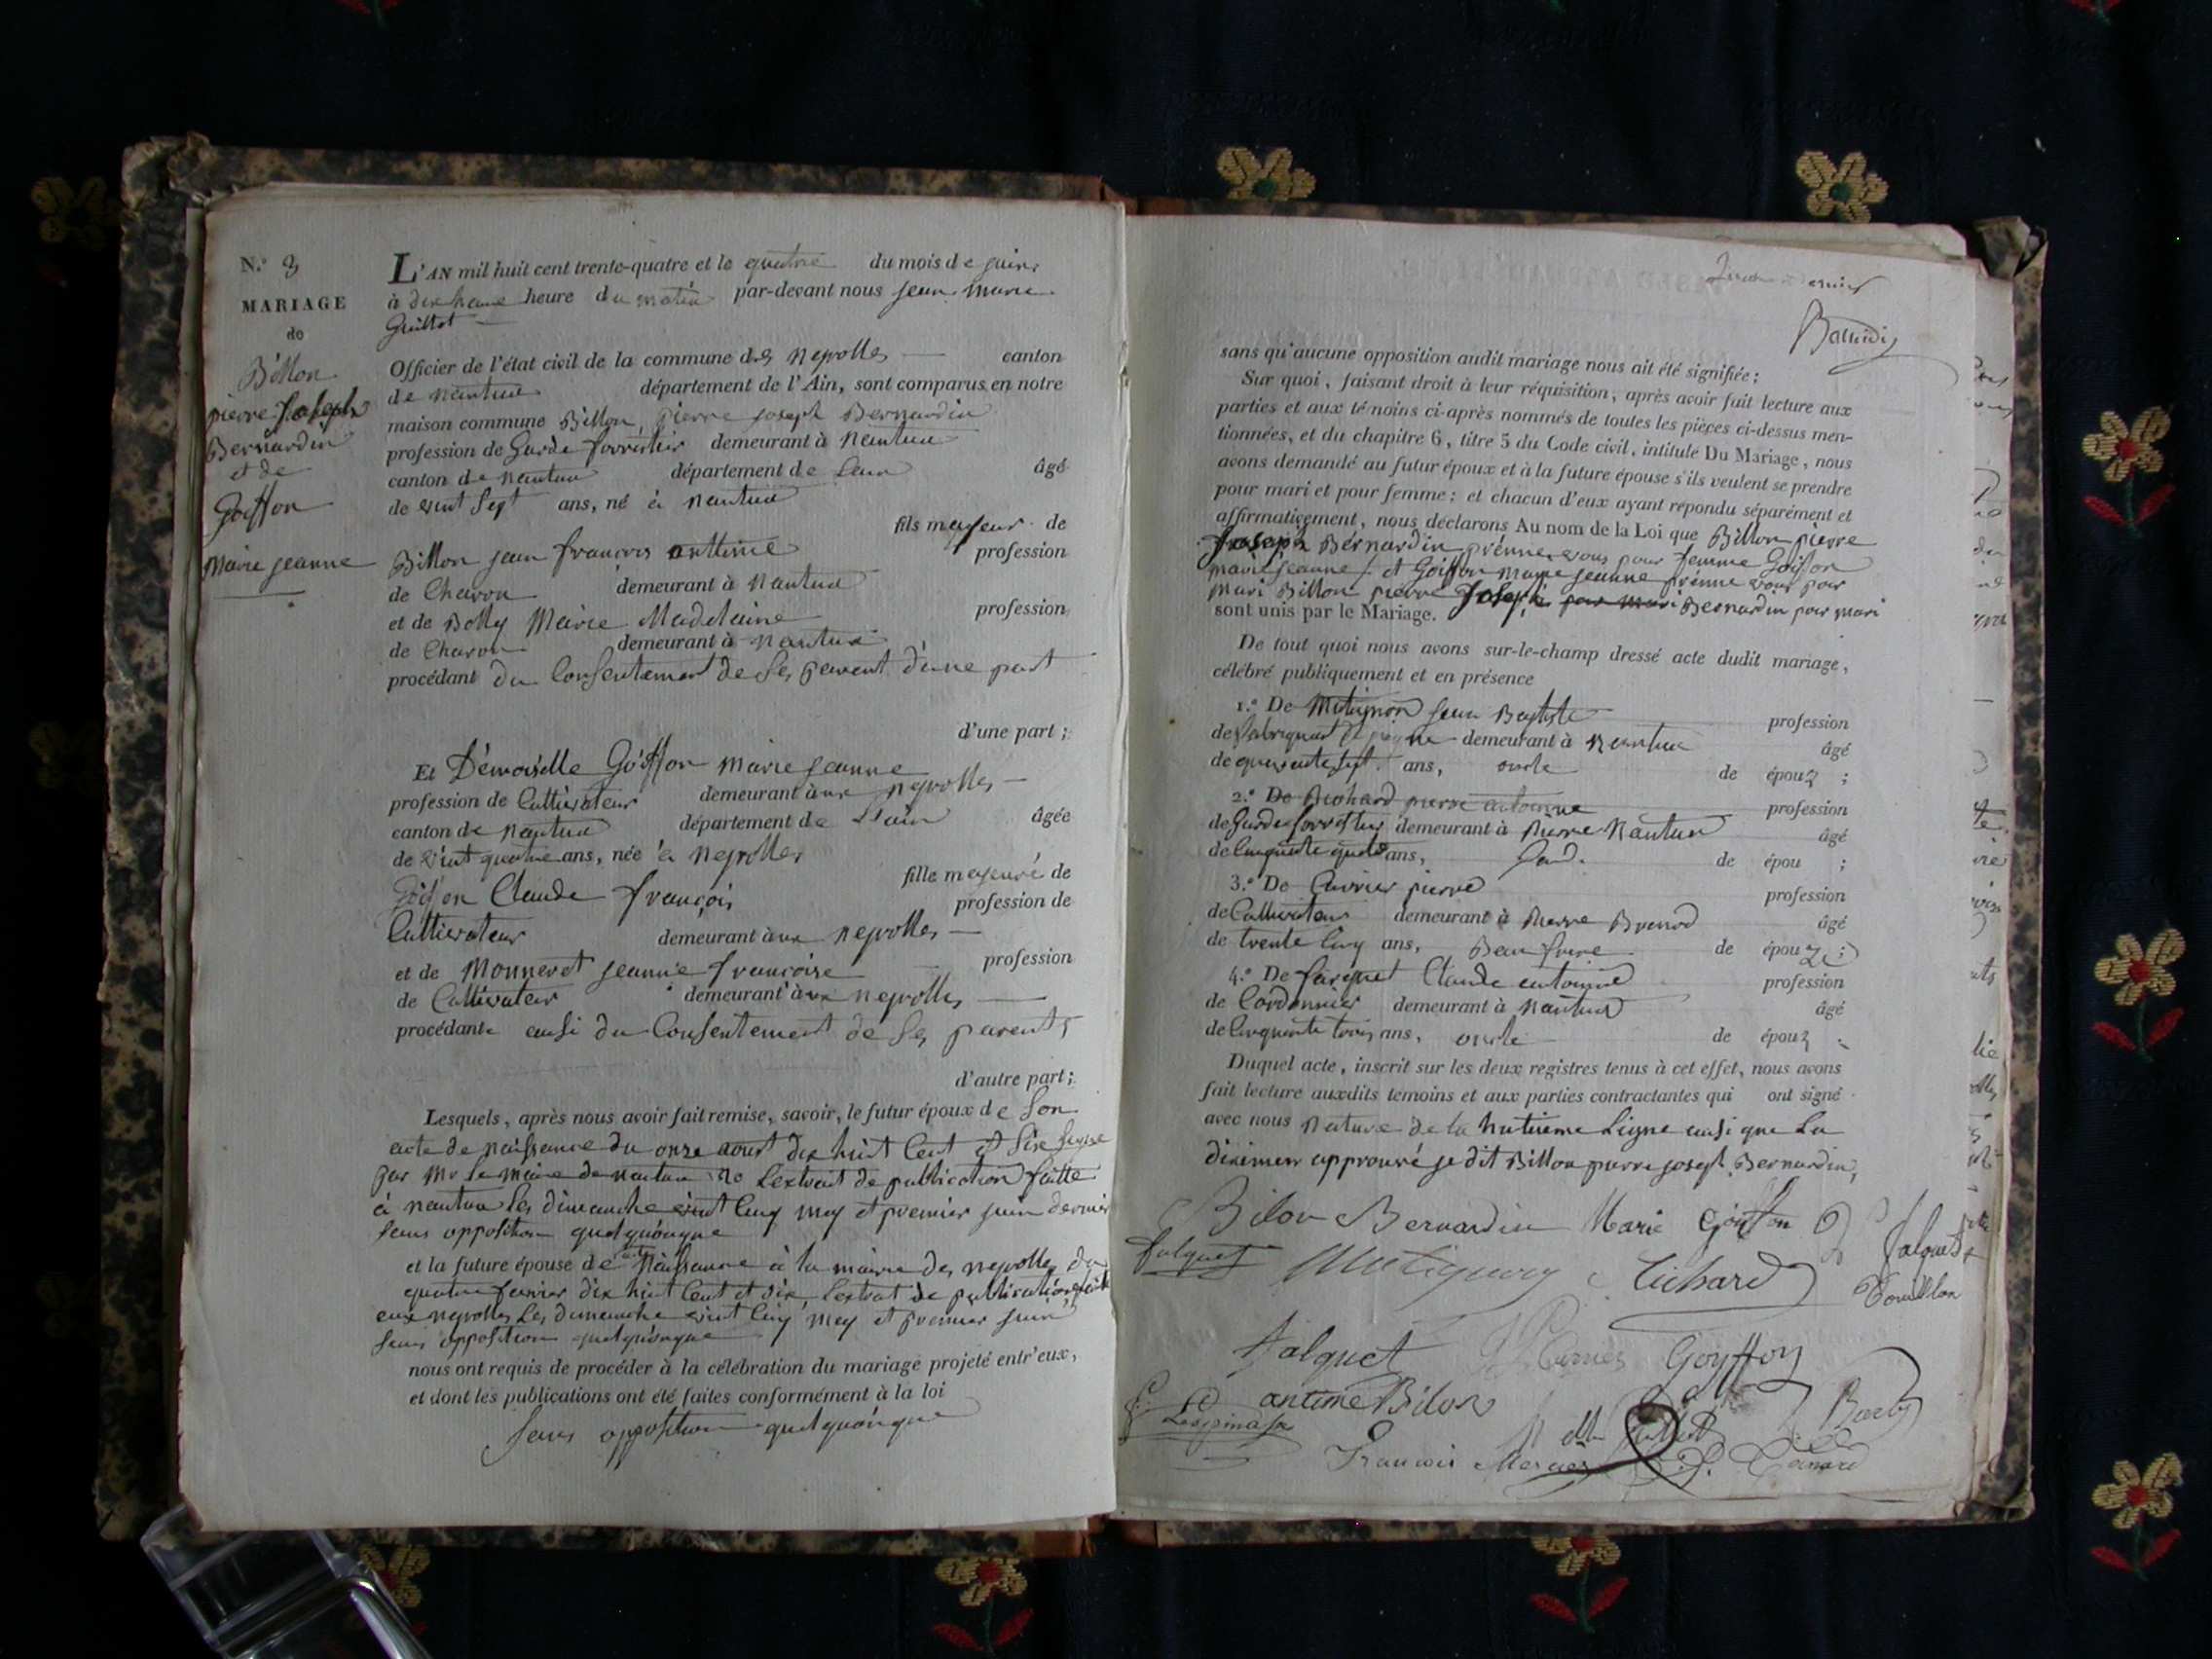 N.º 3
MARIAGE
de
Billon
pierre Joseph
Bernardin
et de
Goiffon
Marie jeanne
L'AN mil huit cent trente-quatre et le quatre du mois de juin
à dix heure du matin par-devant nous jean marie
Guillot
Officier de l'état civil de la commune des neyrolles canton
de nantua département de l'Ain, sont comparus en notre
maison commune Billon, pierre joseph Bernardin
profession de Garde forrestier demeurant à nantua
canton de nantua département de Lain âgé
de vint sept ans, né à nantua
fils mageur de
Billon jean françois anttime profession
de Charon demeurant à nantua
et de Bolly Marie Madelaine profession
de Charon demeurant à nantua
procédant du Consentement de Ses parent d'une part
d'une part ;
Et Démoiselle Goiffon marie jeanne
profession de Cultivateur demeurant aux neyrolles
canton de nantua département de Lain âgée
de vint quatre ans, née à neyrolles
fille mageure de
Goiffon Claude françois profession de
Cultivateur demeurant aux neyrolles
et de Monneret jeanne françoise profession
de Cultivateur demeurant aux neyrolles
procédante ausi du Consentement de Ses parents
d'autre part ;
Lesquels, après nous avoir fait remise, savoir, le futur époux de Son
acte de naissance du onze aout dix huit Cent et Sixe
par Mr le maire de nantua 2o Lextrait de publication faitte
à nantua les dimanche vint Cinq mey et premier juin dernier
sans opposition quelquonque
et la future épouse de naissance à la mairie des neyrolles du
quatre fevrier dix huit Cent et dix, Lextrait de publication faite
aux neyrolles Les dimanche vint Cinq mey et premier juin
sans opposition quelquonque
nous ont requis de procéder à la célébration du mariage projeté entr'eux,
et dont les publications ont été faites conformément à la loi
sans opposition quelquonque
sans qu'aucune opposition audit mariage nous ait été signifiée ;
Sur quoi, faisant droit à leur réquisition, après avoir fait lecture aux
parties et aux témoins ci-après nommés de toutes les pièces ci-dessus men-
tionnées, et du chapitre 6, titre 5 du Code civil, intitulé Du Mariage, nous
avons demandé au futur époux et à la future épouse s'ils veulent se prendre
pour mari et pour femme ; et chacun d'eux ayant répondu séparément et
affirmativement, nous déclarons Au nom de la Loi que Billon pierre
Joseph Bérnardin prénne vous pour femme Goiffon
marie jeanne et Goiffon Marie jeanne prénne vous pour
mari Billon pierre Joseph pour mari Bernardin pour mari
sont unis par le Mariage.
De tout quoi nous avons sur-le-champ dressé acte dudit mariage,
célébré publiquement et en présence
1.º De jean Baptiste profession
de fabriquant de peigne demeurant à nantua âgé
de quarante sept ans, oncle de épouz ;
2.º De Richard pierre antoinne profession
de Garde forrestier demeurant à Nantua âgé
de Cinquante ans, de épou ;
3.º De pierre profession
de Cultivateur demeurant à Brenod âgé
de trente Cinq ans, Beau frere de épouz ;
4.º De Falquet Claude antoinne profession
de Cordonnier demeurant à nantua âgé
de Cinquante trois ans, oncle de épouz
Duquel acte, inscrit sur les deux registres tenus à cet effet, nous avons
fait lecture auxdits témoins et aux parties contractantes qui ont signé
avec nous nature de la huitieme Ligne ausi que La
approuvé je dit Billon pierre joseph Bernardin,
Bilon Bernardin Marie Goiffon
Falquet
Falquet Richard
Falquet Goyffon
antime Bilon
Lespinasse
Francois Mercier